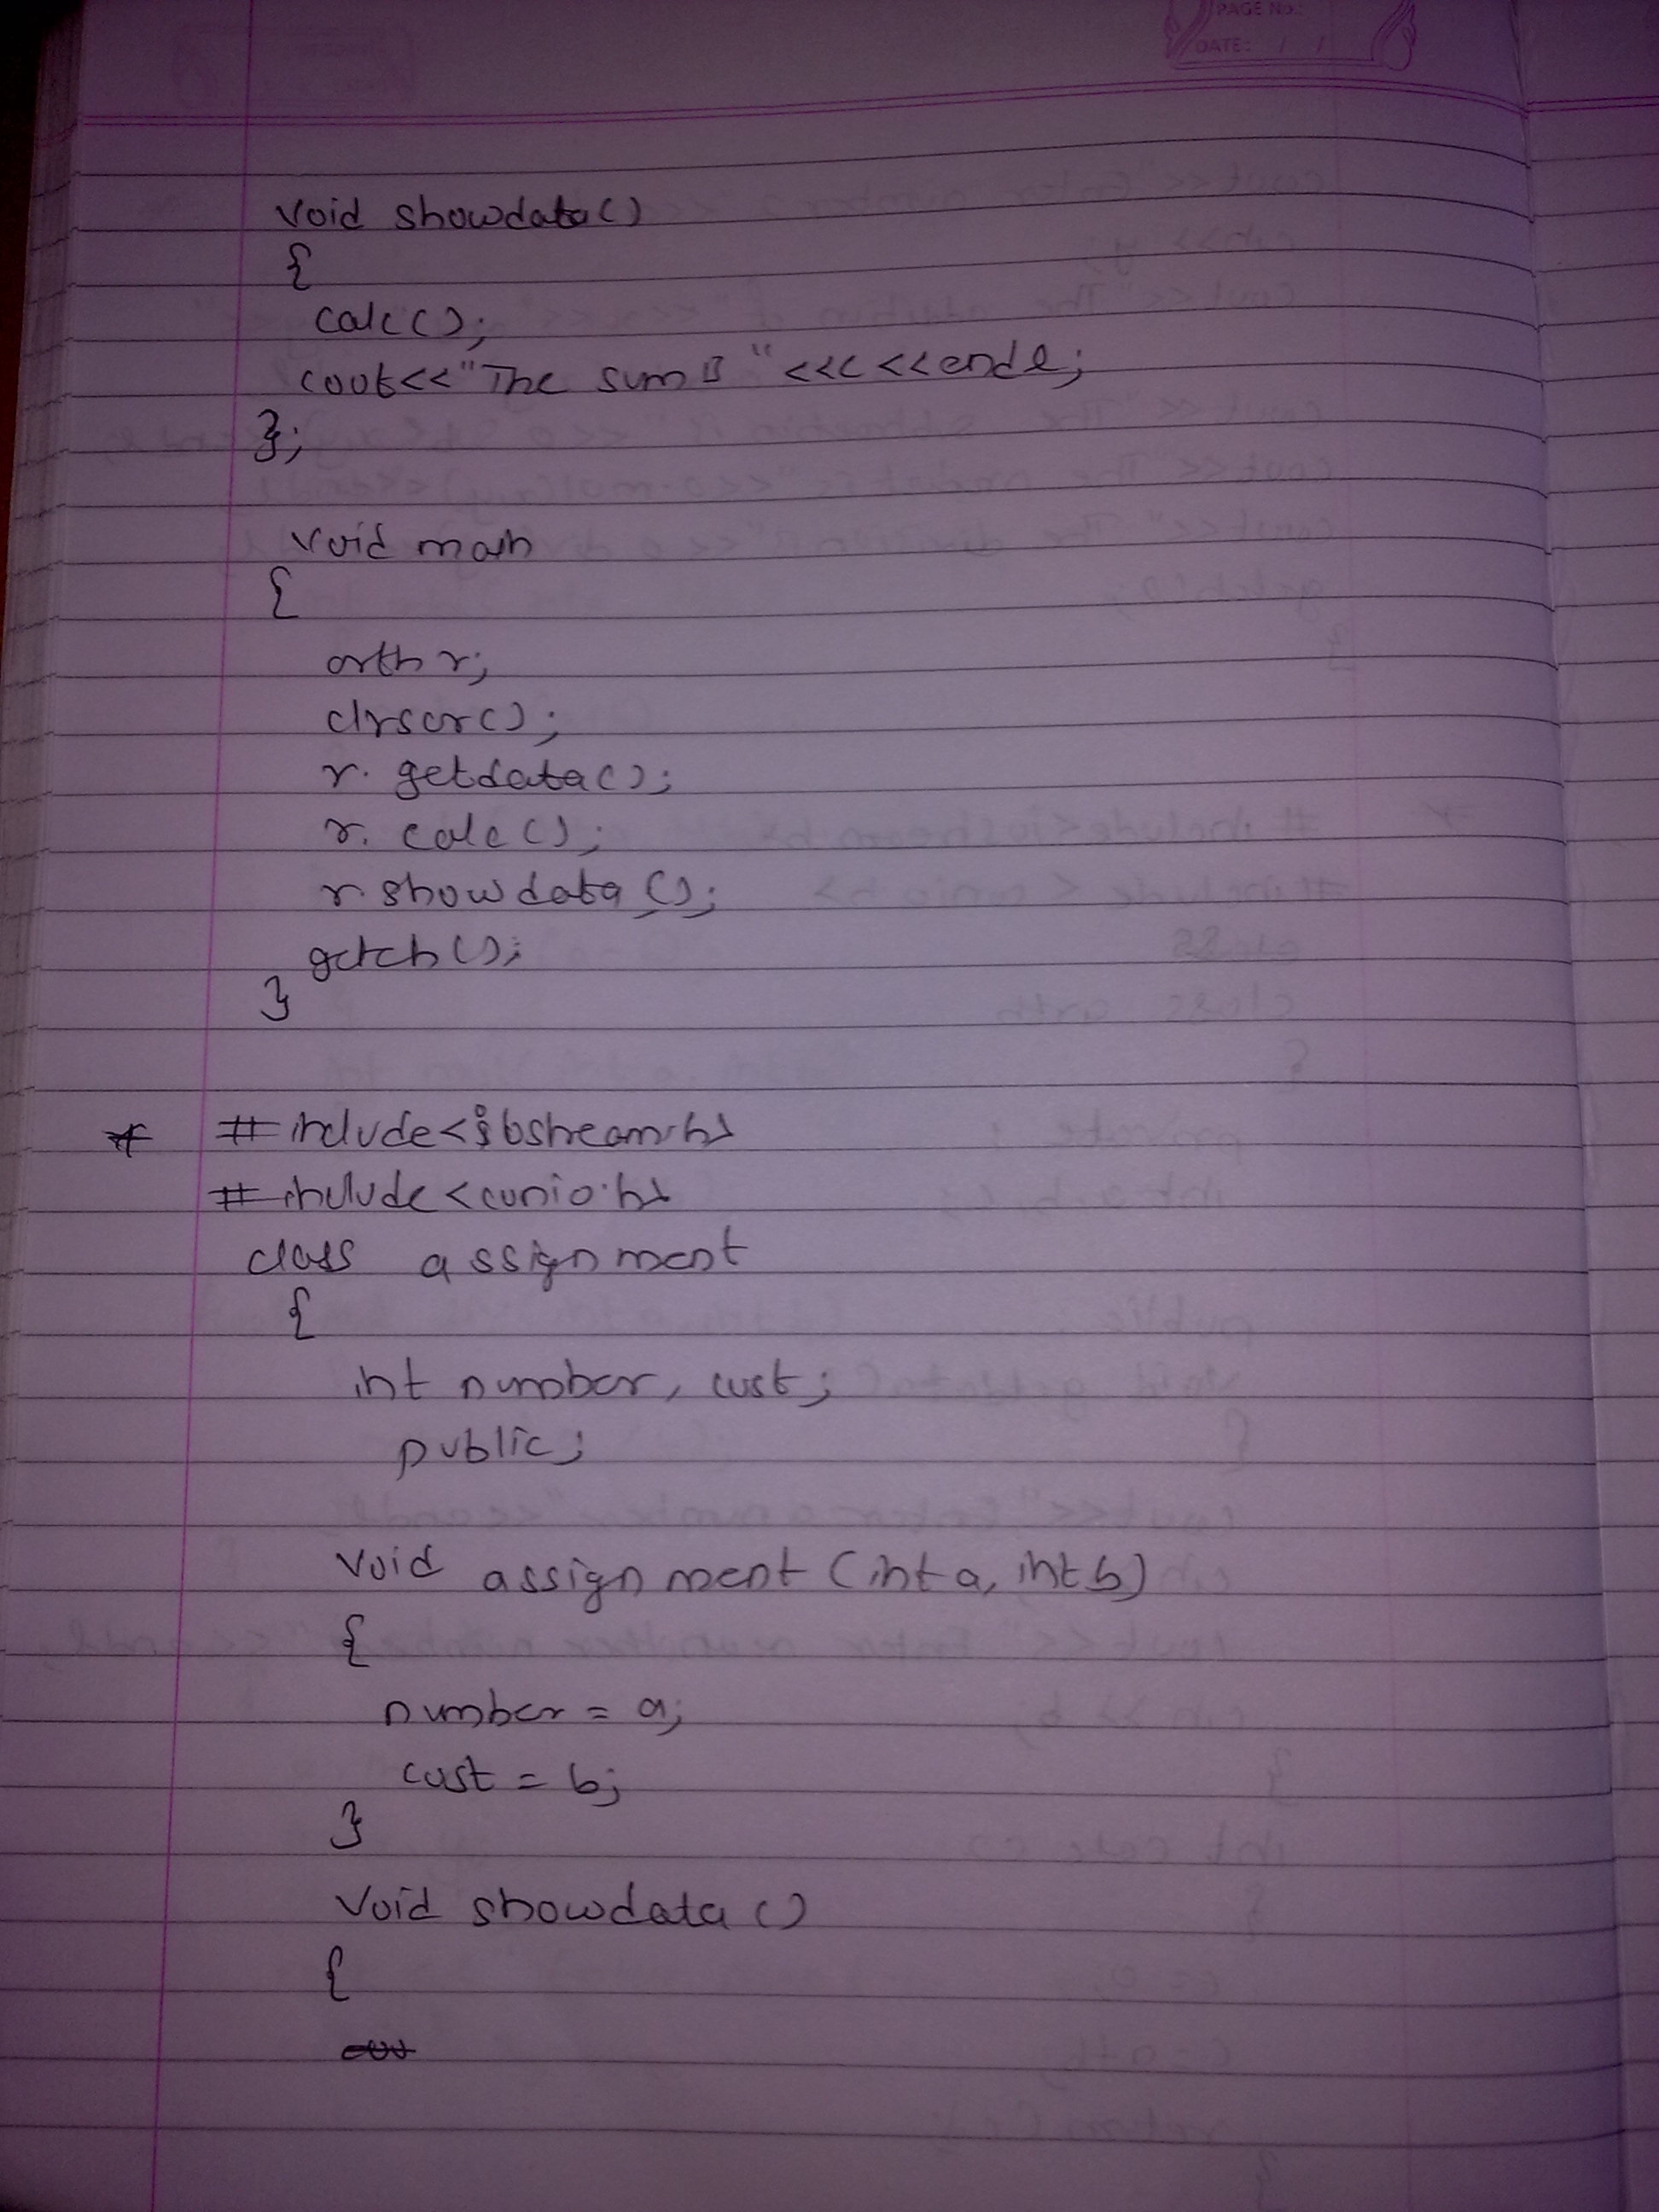 PAGE NO.:
DATE: / /
void showdata()
{
calc();
cout<<"The sum is "<<c<<endl;
};
void main
{
arth r;
clrscr();
r. getdata();
r. calc();
r. showdata();
getch();
}
* #include<iostream.h>
#include<conio.h>
class assignment
{
int number, cust;
public;
void assignment (int a, int b)
{
number = a;
cust = b;
}
void showdata ()
{